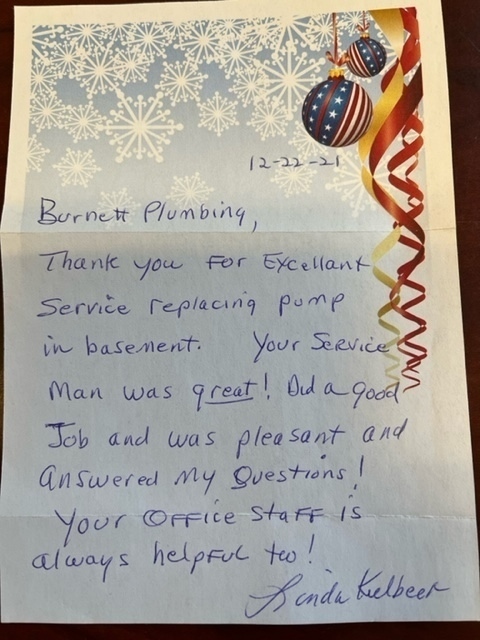 12-22-21
Burnett Plumbing,
Thank you for Excellant
Service replacing pump
in basement. Your Service
Man was great! Did a good
Job and was pleasant and
answered my Questions!
Your Office Staff is
always helpful too!
Linda